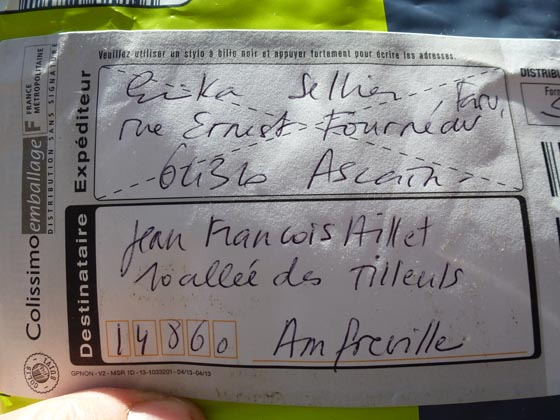 Veuillez utiliser un stylo à bille noir et appuyer fortement pour écrire les adresses.
Colissimo emballage F FRANCE MÉTROPOLITAINE
DISTRIBUTION SANS SIGNATURE
Expéditeur
Erika Sellier,
rue Ernest Fourneau
64310 Ascain
Destinataire
Jean Francois Aillet
10 allée des Tilleuls
14860 Amfreville
GPNON - V2 - MSR 1D - 13-1033201 - 04/13-04/13
DISTRIB